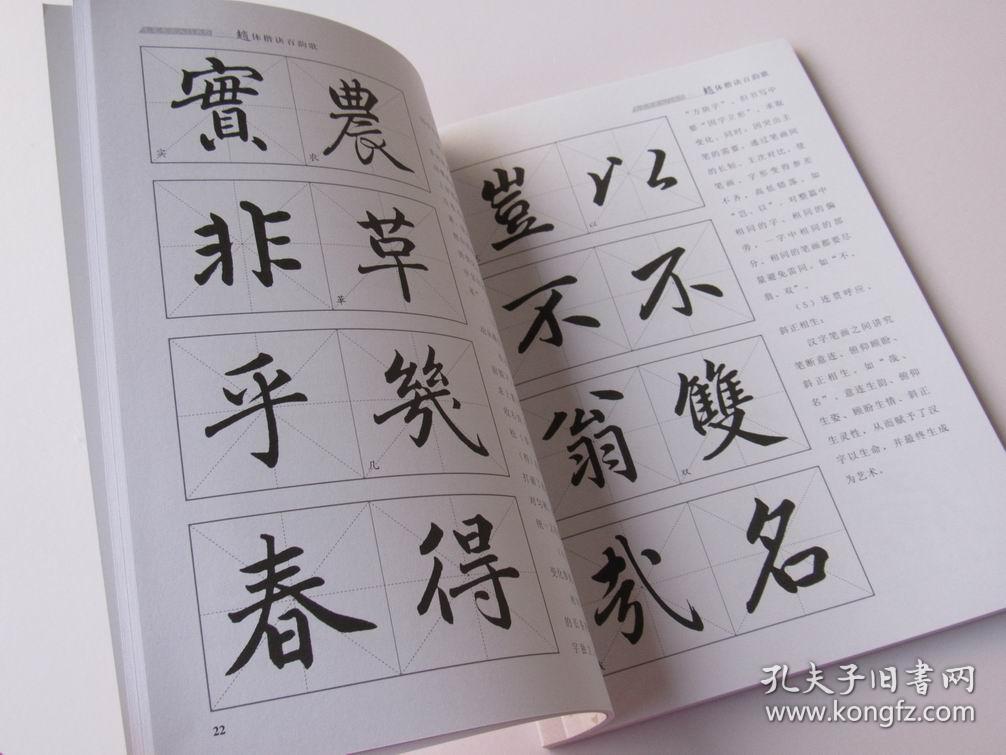 趙体楷诀百韵歌
實 農
实 农
非 草
草
乎 幾
几
春 得
22
趙体楷诀百韵歌
豈 以
以
不 不
翁 雙
双
哉 名
“方块字”，但书写中
要“因字立形”，求取
变化，同时，因突出主
笔的需要，通过笔画间
的长短、主次对比，使
笔画、字形变得参差
不齐，高低错落，如
“岂、以”，对整篇中
相同的字、相同的偏
旁，一字中相同的部
分、相同的笔画都要尽
量避免雷同，如“不、
翁、双”。
（5）连贯呼应，
斜正相生：
汉字笔画之间讲究
笔断意连、俯仰顾盼、
斜正相生，如“哉、
名”，意连生韵、俯仰
生姿、顾盼生情、斜正
生灵性，从而赋予了汉
字以生命，并最终生成
为艺术。
孔夫子旧书网
www.kongfz.com